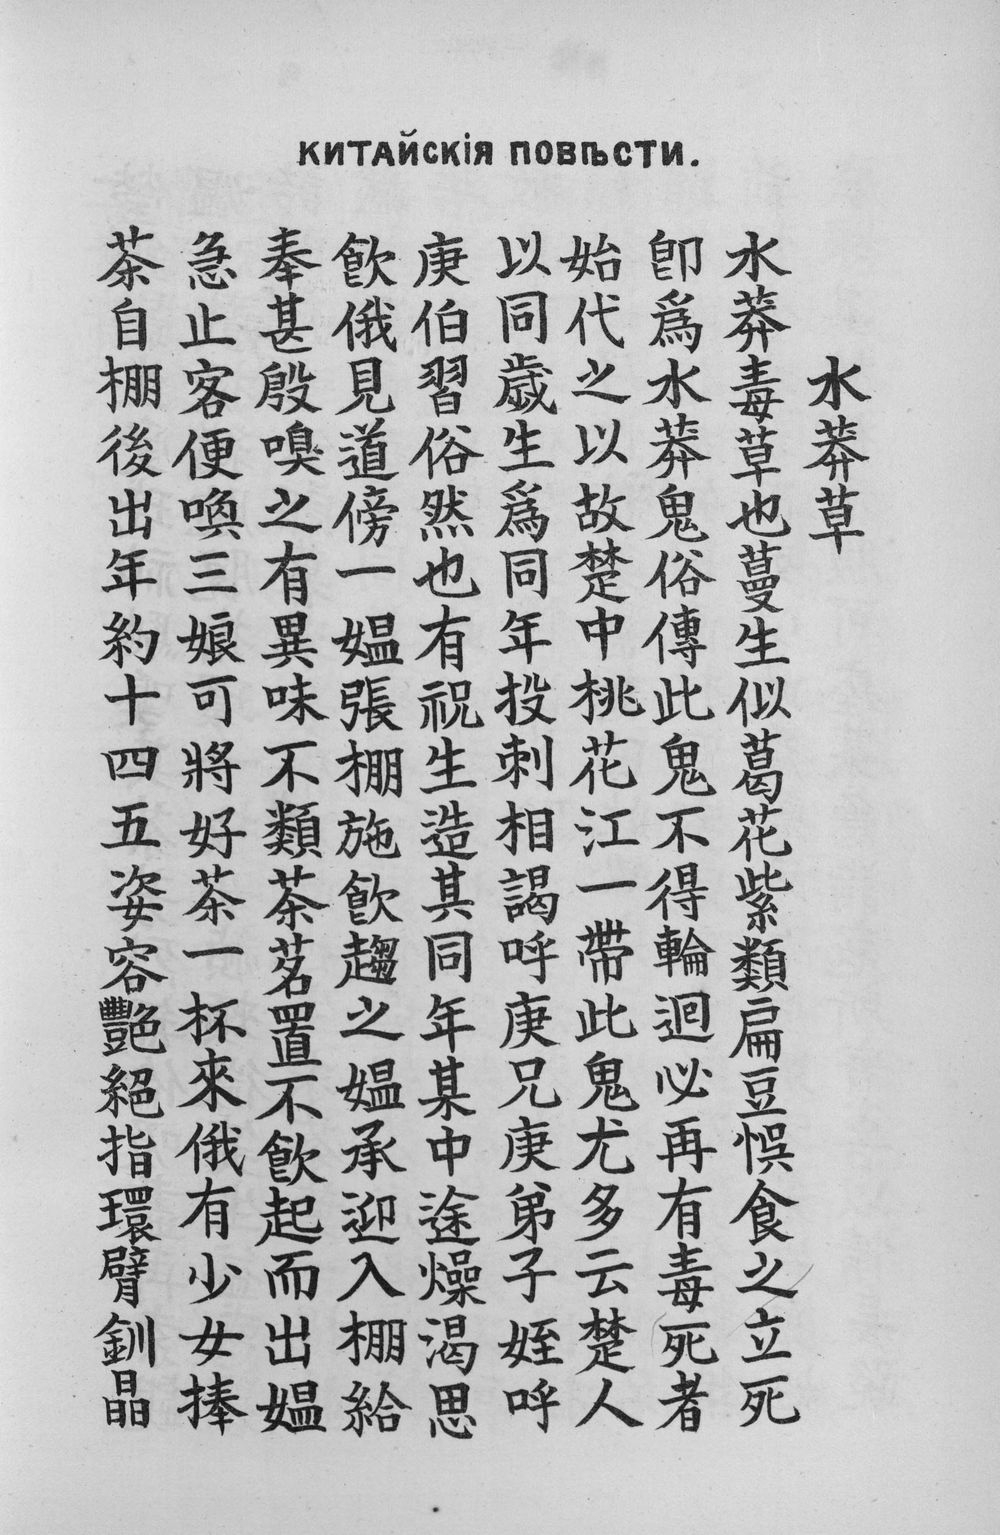 КИТАЙСКІЯ ПОВѢСТИ.
水莽草
水莽毒草也蔓生似葛花紫類扁豆悞食之立死
卽爲水莽鬼俗傳此鬼不得輪迴必再有毒死者
始代之以故楚中桃花江一帶此鬼尤多云楚人
以同歲生爲同年投刺相謁呼庚兄庚弟子姪呼
庚伯習俗然也有祝生造其同年某中途燥渴思
飮俄見道傍一媼張棚施飮趨之媼承迎入棚給
奉甚殷嗅之有異味不類茶茗置不飮起而出媼
急止客便喚三娘可將好茶一杯來俄有少女捧
茶自棚後出年約十四五姿容艷絕指環臂釧晶